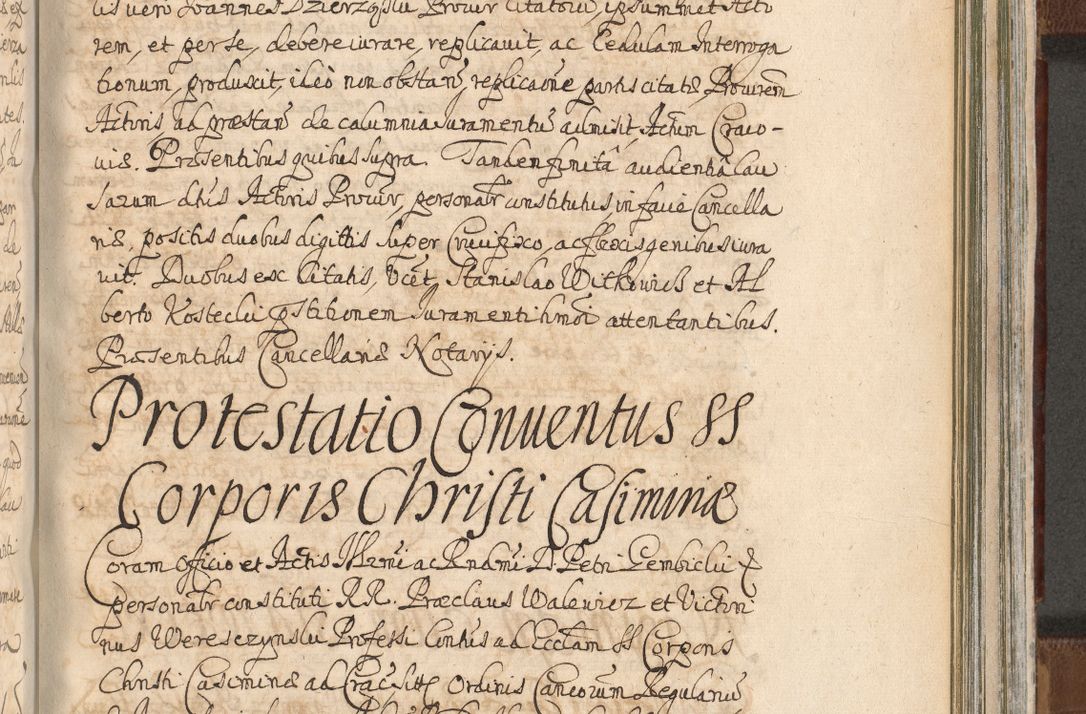 tis vero Joannes Dzierzynski Procur Citatorũ, ipsummet Acto
rem, et per se, debere iurare, replicauit, ac Cedulam Interroga
tionum, produxit, ideò non obstan̄, replicaõne partis citatæ, Prourem̄
Actoris, ad præstan̄ de calumnia iuramentũ admisit, Actum Craco-
uiæ. Præsentibus quibus supra. Tandem finitâ audientiâ Cau
sarum dtũs Actoris Procur, personalr̃ constitutus, in facie Cancella
riæ, positis duobus digitis super Crucifixo, ac flexis genibus iura
uit. Duobus ex Citatis, Vcet, Stanislao Witkowicz et Al
berto Kostecki pstitionem iuramenti hm̃oi attentantibus.
Præsentibus Cancellariæ Notarijs.
Protestatio Conuentus SS
Corporis Christi Casimiriæ
Coram Officio et Actis Illr̃mi ac Rndmi D. Petri Gembicki &
personalr̃ constituti RR. Præclaus Walewicz et Victori
nus Weresczynski Professi Contũs ad Ecclam SS Corporis
Christi Casimiriæ ad Crac̃ sittæ Ordinis Cancorum Regulariũ